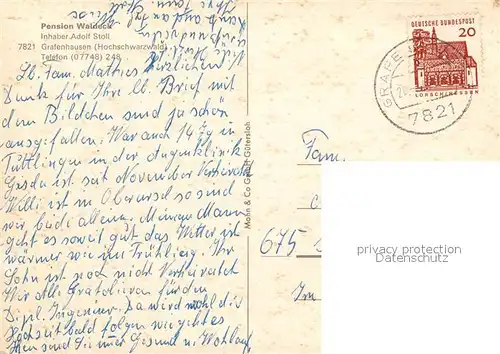 Pension Waldeck
Inhaber Adolf Stoll
7821 Grafenhausen (Hochschwarzwald)
Telefon (07748) 248
Lb. Fam. Mathies Herzlichen
Dank für Ihre lb. Brief mit
den Bildchen sind ja schön
ausgefallen. War auch 14 Tg in
Tüttlingen in der Augenklinik
Gisela ist seit November Verheiratet
Willi ist in Oberursel so sind
wir beide alleine. Meinem Mann
geht es soweit gut das Wetter ist
wärmer wie im Frühling. Ihr
Sohn ist noch nicht Verheiratet
Wir Alle Gratolieren für den
Dipl. Ingenieur. Da wird wohl die
Hochzeit bald folgen wie geht es
Ihnen sind Sie immer Gesund u. Wohlauf
Mohn & Co GmbH Gütersloh
DEUTSCHE BUNDESPOST
20
LORSCH/HESSEN
GRAFE
7821
Fam.
675
Im
privacy protection